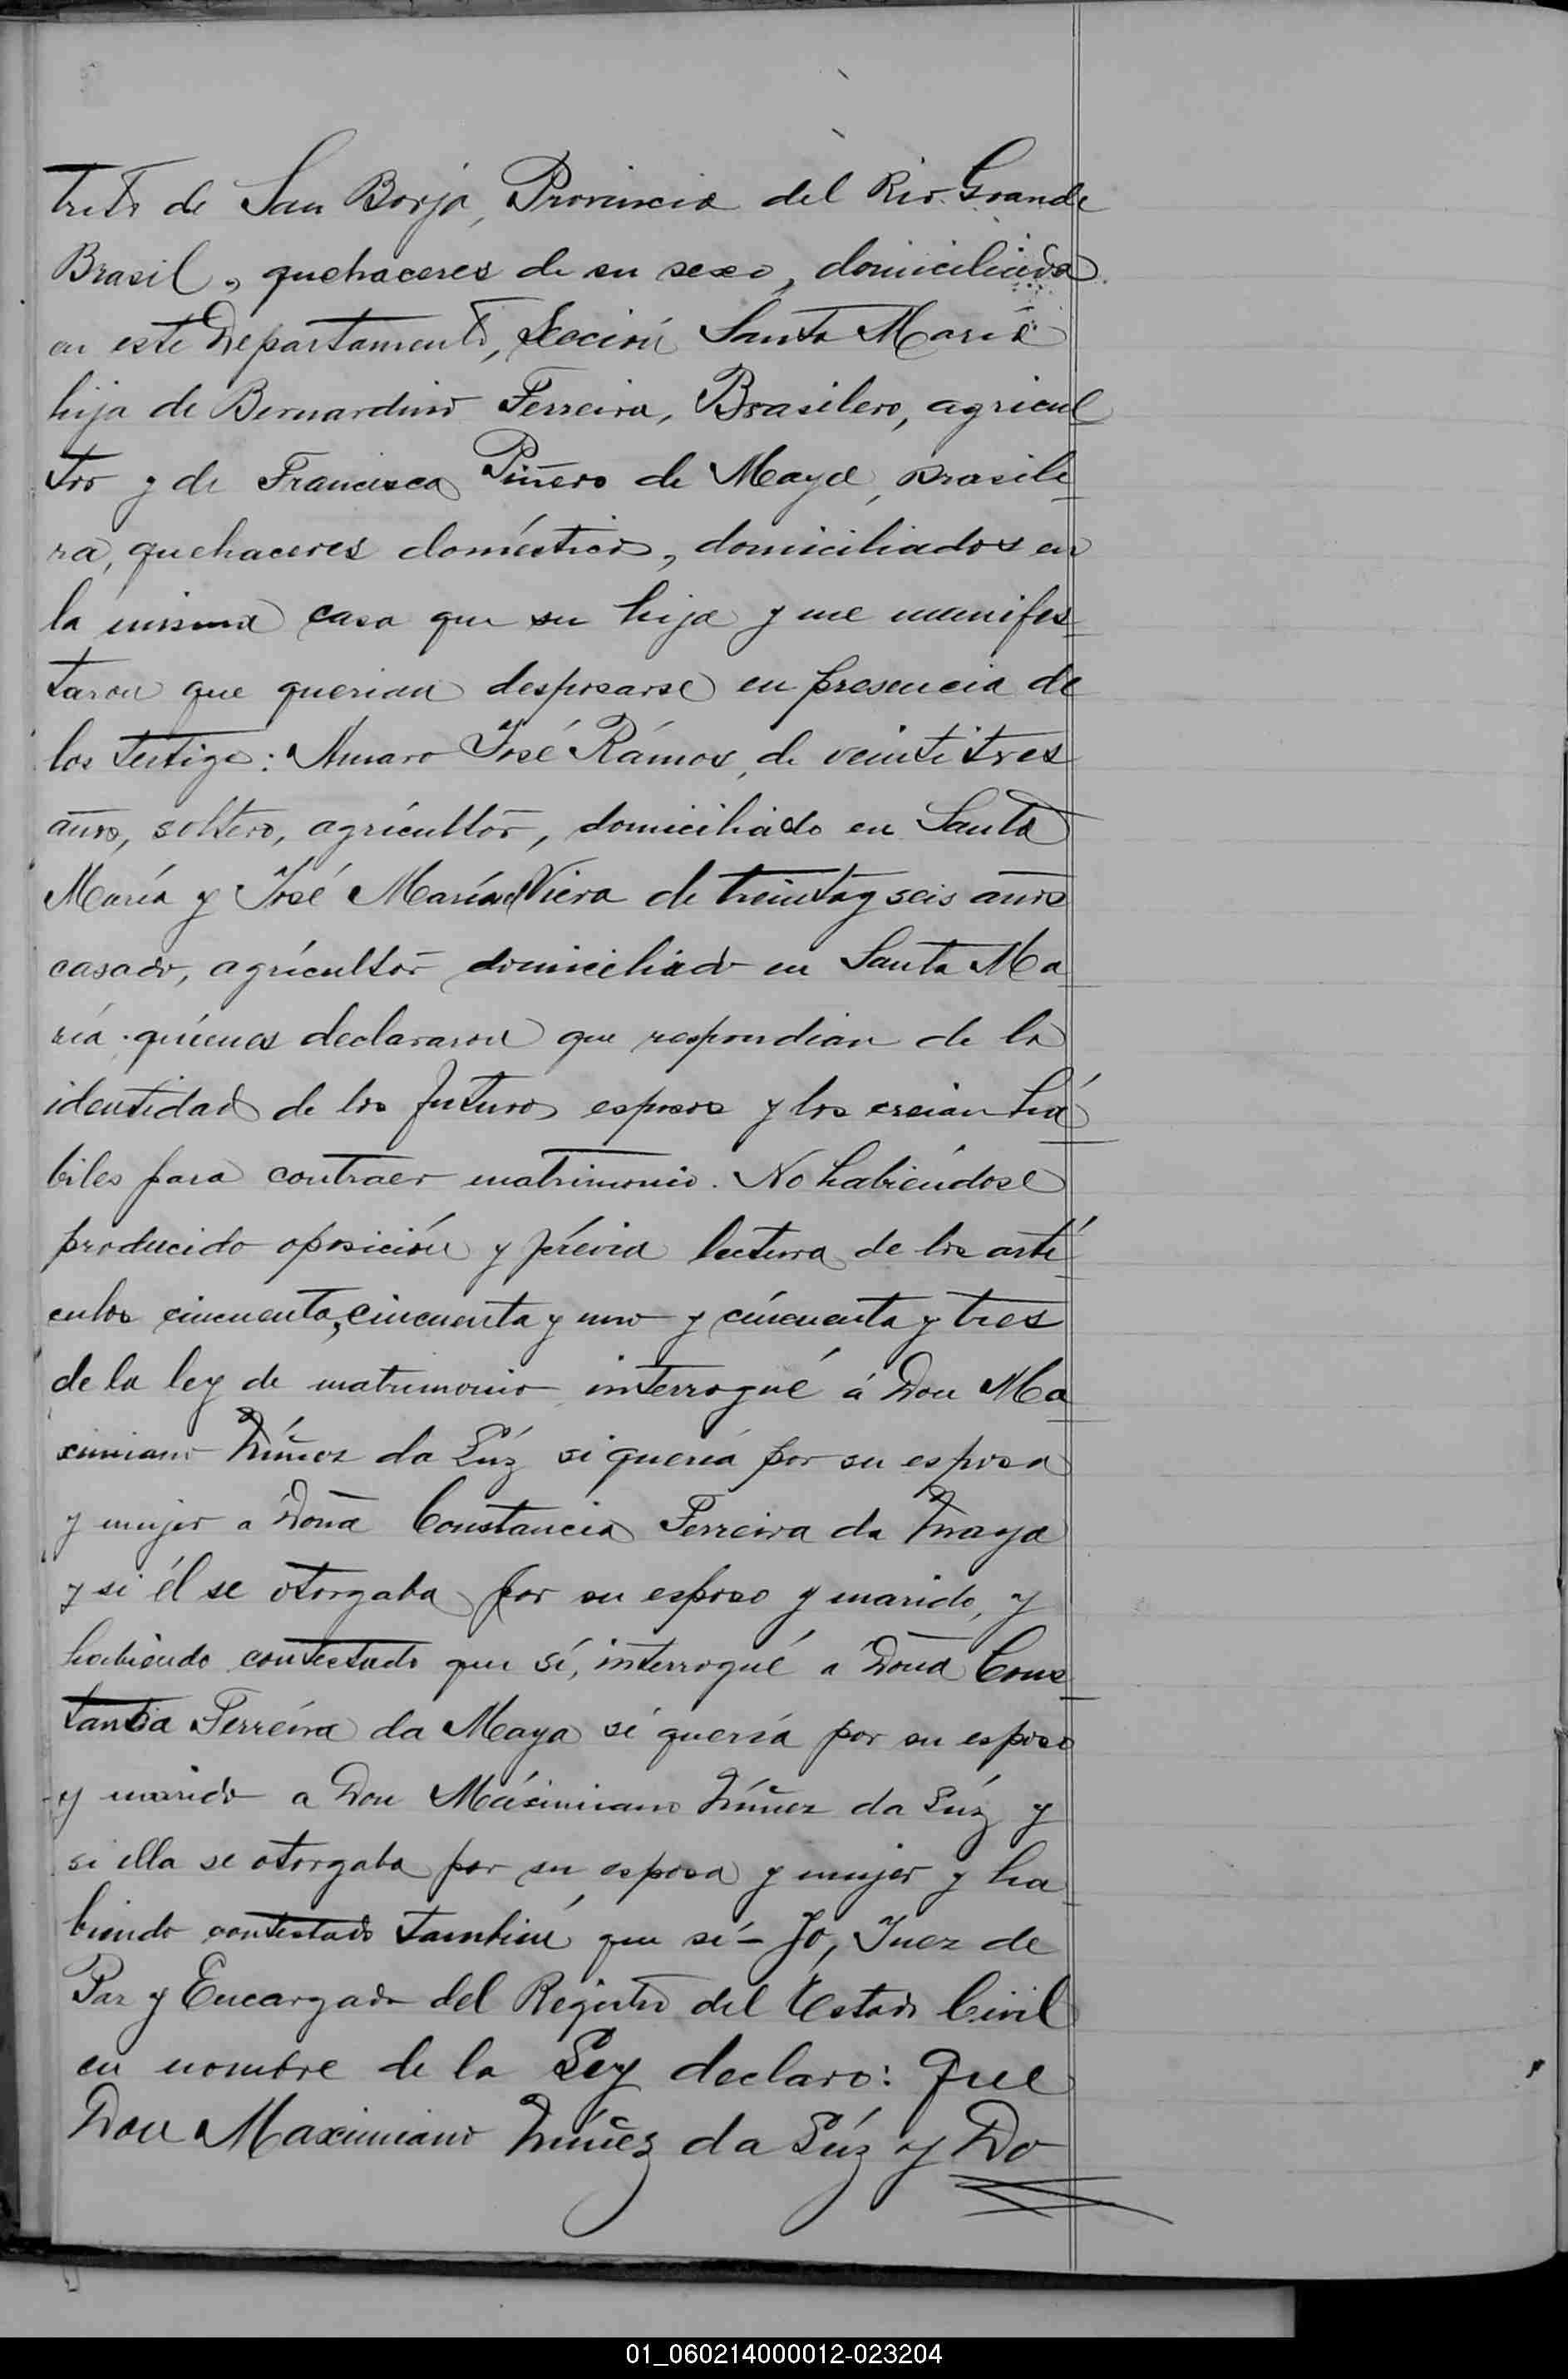 trito de San Borja, Provincia del Rio Grande
Brasil, quehaceres de su sexo, domiciliada
en este Departamento, Sección Santa María
hija de Bernardino Ferreira, Brasilero, agricul
tor y de Francisca Piñero de Maya, Brasile
ra, quehaceres domésticos, domiciliados en
la misma casa que su hija y me manifes
taron que querian desposarse en presencia de
los testigos: Amaro José Rámos, de veintitres
años, soltero, agrícultor, domiciliado en Santa
María y José María Viera de treinta y seis años
casado, agrícultor domiciliado en Santa Ma
ría quiénes declararon que respondian de la
identidad de los futuros esposos y los creian há
biles para contraer matrimonio. No habiéndose
producido oposición y prévia lectura de los artí
culos cincuenta, cincuenta y uno y cincuenta y tres
de la ley de matrimonio interrogué á Don Ma
ximiano Núñez da Lúz si quería por su esposa
y mujer a Doña Constancia Ferreira da Maya
y si él se otorgaba por su esposo y marido, y
habiendo contestado que sí, interrogué a Doña Cons
tancia Ferreira da Maya si quería por su esposo
y marido a Don Máximiano Núñez da Lúz y
si ella se otorgaba por su esposa y mujer y ha
biendo contestado también que sí - Yo, Juez de
Paz y Encargado del Registro del Estado Civil
en nombre de la Ley declaro: Que
Don Maximiano Núñez da Lúz y Do
01_060214000012-023204